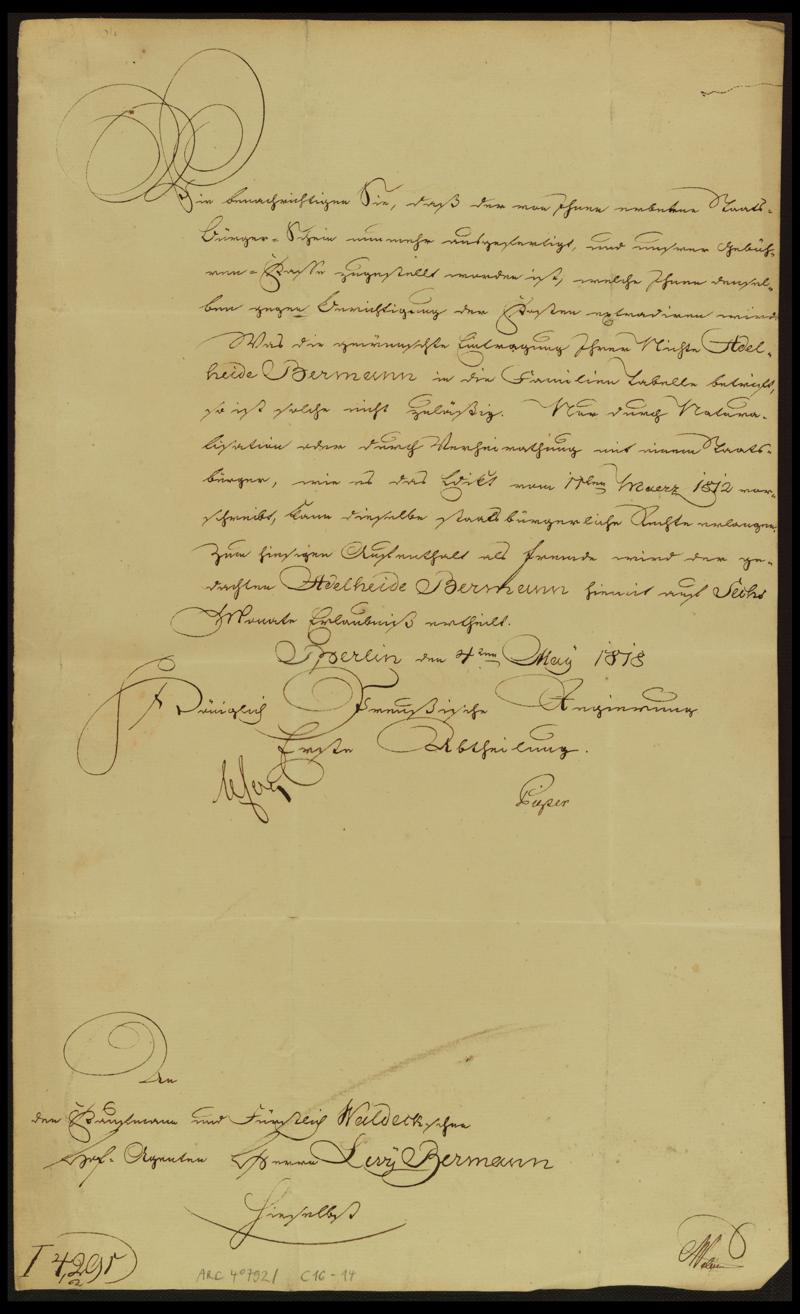 Wir benachrichtigen Sie, daß der von Ihnen erbetene Staats-
Bürger-Schein nunmehr ausgefertigt, und unsrer Gebüh-
ren-Kasse zugestellt worden ist, welche Ihnen densel-
ben gegen Berichtigung der Kosten extradiren wird.
Was die gewünschte Eintragung Ihrer Nichte Adel-
heide Bermann in die Familien Tabelle betrift,
so ist solche nicht zuläßig. Nur durch Natura-
lisation oder durch Verheirathung mit einem Staats-
bürger, wie es das Edikt vom 11ten Maerz 1812 vor-
schreibt, kann dieselbe staatsbürgerliche Rechte erlangen.
Zum hiesigen Aufenthalt als Fremde wird der ge-
dachten Adelheide Bermann hiemit auf Sechs
Monate Erlaubniß ertheilt.
Berlin den 4ten May 1818
Königlich Preußische Regierung
Erste Abtheilung.
An
den Kaufmann und Fürstlich Waldeckschen
Hof-Agenten Herrn Levy Bermann
Hieselbst
ARC 4°792/ C16-14